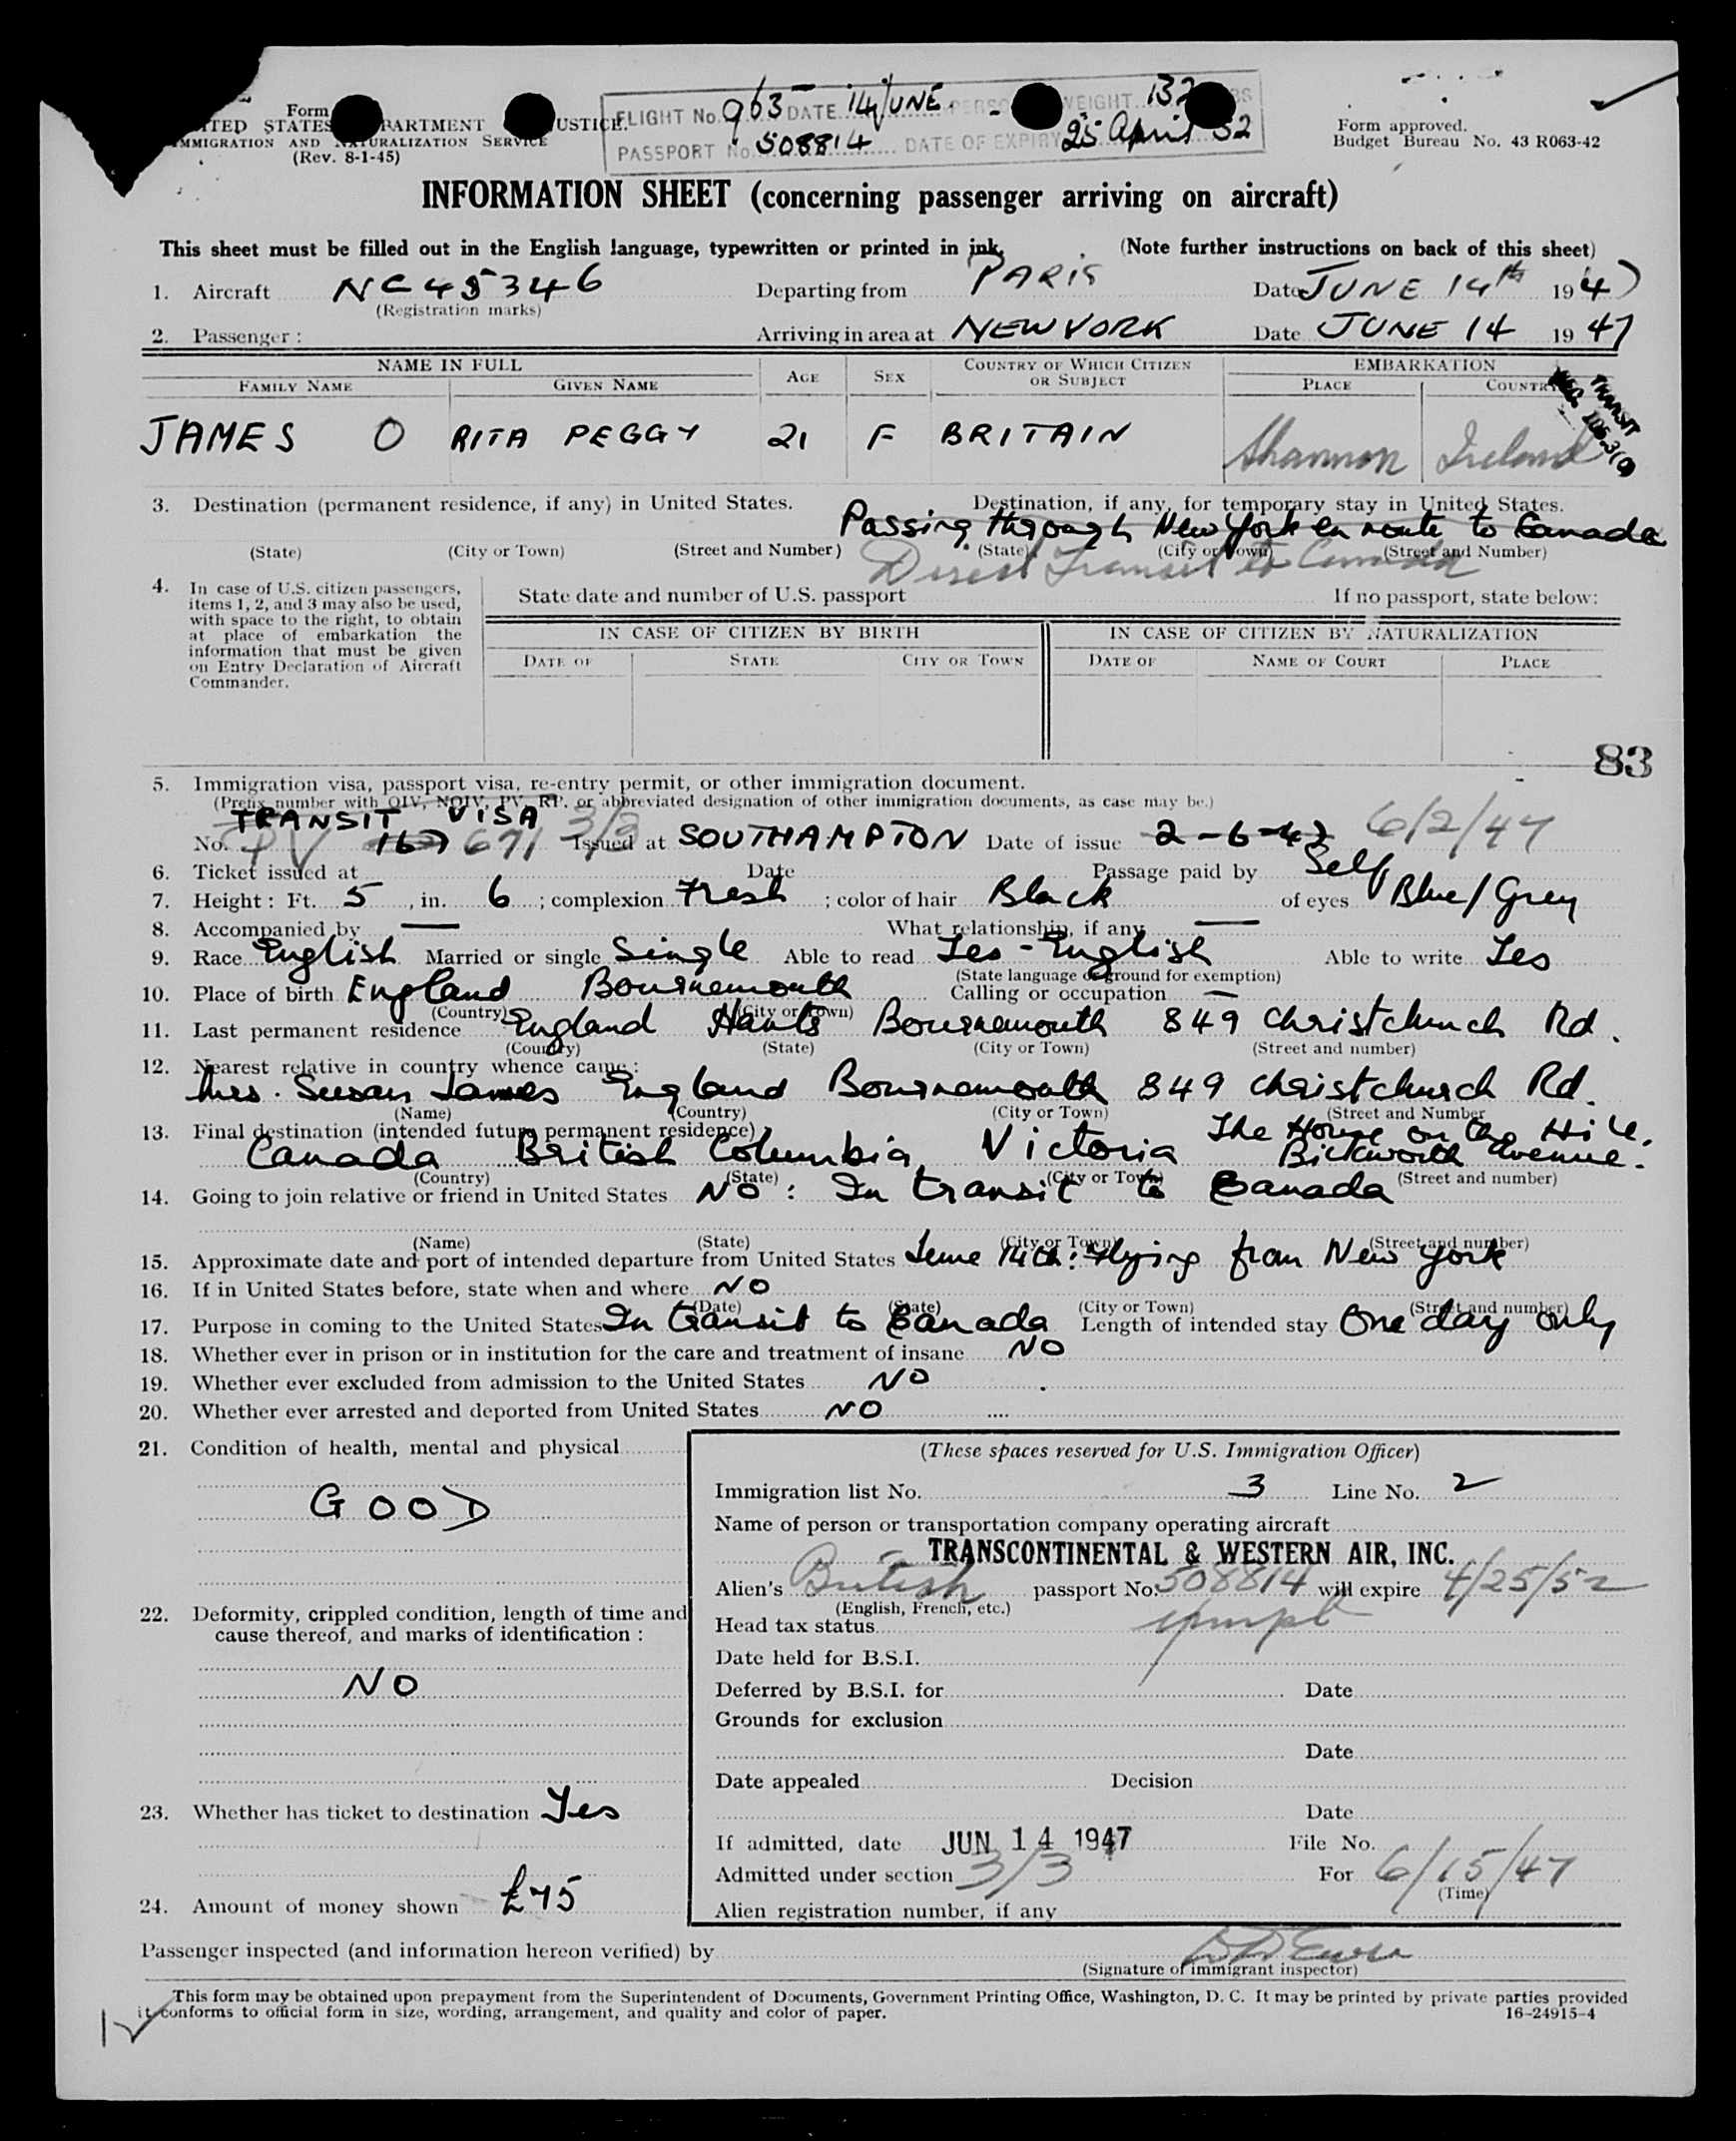 Form
ITED STATES PARTMENT USTICE.
IMMIGRATION AND NATURALIZATION SERVICE
(Rev. 8-1-45)
FLIGHT No. 963 DATE 14 JUNE. PERSO WEIGHT 132 LBS
PASSPORT No. 508814 DATE OF EXPIRY 25 April 52
Form approved.
Budget Bureau No. 43 R063-42
INFORMATION SHEET (concerning passenger arriving on aircraft)
This sheet must be filled out in the English language, typewritten or printed in ink. (Note further instructions on back of this sheet)
1. Aircraft NC45346 Departing from PARIS Date JUNE 14th 1947
(Registration marks)
2. Passenger: Arriving in area at NEW YORK Date JUNE 14 1947
NAME IN FULL AGE SEX COUNTRY OF WHICH CITIZEN OR SUBJECT EMBARKATION
FAMILY NAME GIVEN NAME PLACE COUNTRY
TRANSIT
JAMES O RITA PEGGY 21 F BRITAIN Shannon Ireland
3. Destination (permanent residence, if any) in United States. Destination, if any, for temporary stay in United States.
Passing through New York en route to Canada
(State) (City or Town) (Street and Number) (State) (City or Town) (Street and Number)
Direct Transit to Canada
4. In case of U.S. citizen passengers, items 1, 2, and 3 may also be used, with space to the right, to obtain at place of embarkation the information that must be given on Entry Declaration of Aircraft Commander.
State date and number of U.S. passport If no passport, state below:
IN CASE OF CITIZEN BY BIRTH IN CASE OF CITIZEN BY NATURALIZATION
DATE OF STATE CITY OR TOWN DATE OF NAME OF COURT PLACE
83
5. Immigration visa, passport visa, re-entry permit, or other immigration document.
(Prefix number with QIV, NQIV, PV, RP. or abbreviated designation of other immigration documents, as case may be.)
TRANSIT VISA 3/3
No. PV 167 671 Issued at SOUTHAMPTON Date of issue 2-6-47 6/2/47
6. Ticket issued at Date Passage paid by Self
7. Height: Ft. 5, in. 6; complexion Fresh; color of hair Black of eyes Blue/Grey
8. Accompanied by — What relationship, if any —
9. Race English Married or single Single Able to read Yes - English Able to write Yes
(State language or ground for exemption)
10. Place of birth England Bournemouth Calling or occupation —
(Country) (City or Town)
11. Last permanent residence England Hants Bournemouth 849 Christchurch Rd.
(Country) (State) (City or Town) (Street and number)
12. Nearest relative in country whence came:
Mrs. Susan James England Bournemouth 849 Christchurch Rd.
(Name) (Country) (City or Town) (Street and Number
13. Final destination (intended future permanent residence) The House on the Hill.
Canada British Columbia Victoria Avenue.
(Country) (State) (City or Town) (Street and number)
14. Going to join relative or friend in United States NO: In transit to Canada
(Name) (State) (City or Town) (Street and number)
15. Approximate date and port of intended departure from United States June 14th: Flying from New York
16. If in United States before, state when and where NO
(Date) (State) (City or Town) (Street and number)
17. Purpose in coming to the United States In transit to Canada Length of intended stay One day only
18. Whether ever in prison or in institution for the care and treatment of insane NO
19. Whether ever excluded from admission to the United States NO
20. Whether ever arrested and deported from United States NO
21. Condition of health, mental and physical
GOOD
22. Deformity, crippled condition, length of time and cause thereof, and marks of identification:
NO
23. Whether has ticket to destination Yes
24. Amount of money shown £75
(These spaces reserved for U.S. Immigration Officer)
Immigration list No. 3 Line No. 2
Name of person or transportation company operating aircraft
TRANSCONTINENTAL & WESTERN AIR, INC.
Alien's British passport No. 508814 will expire 4/25/52
(English, French, etc.)
Head tax status
Date held for B.S.I.
Deferred by B.S.I. for Date
Grounds for exclusion
Date
Date appealed Decision
Date
If admitted, date JUN 14 1947 File No.
Admitted under section 3/3 For 6/15/47
(Time)
Alien registration number, if any
Passenger inspected (and information hereon verified) by
(Signature of immigrant inspector)
This form may be obtained upon prepayment from the Superintendent of Documents, Government Printing Office, Washington, D. C. It may be printed by private parties provided
it conforms to official form in size, wording, arrangement, and quality and color of paper. 16-24915-4